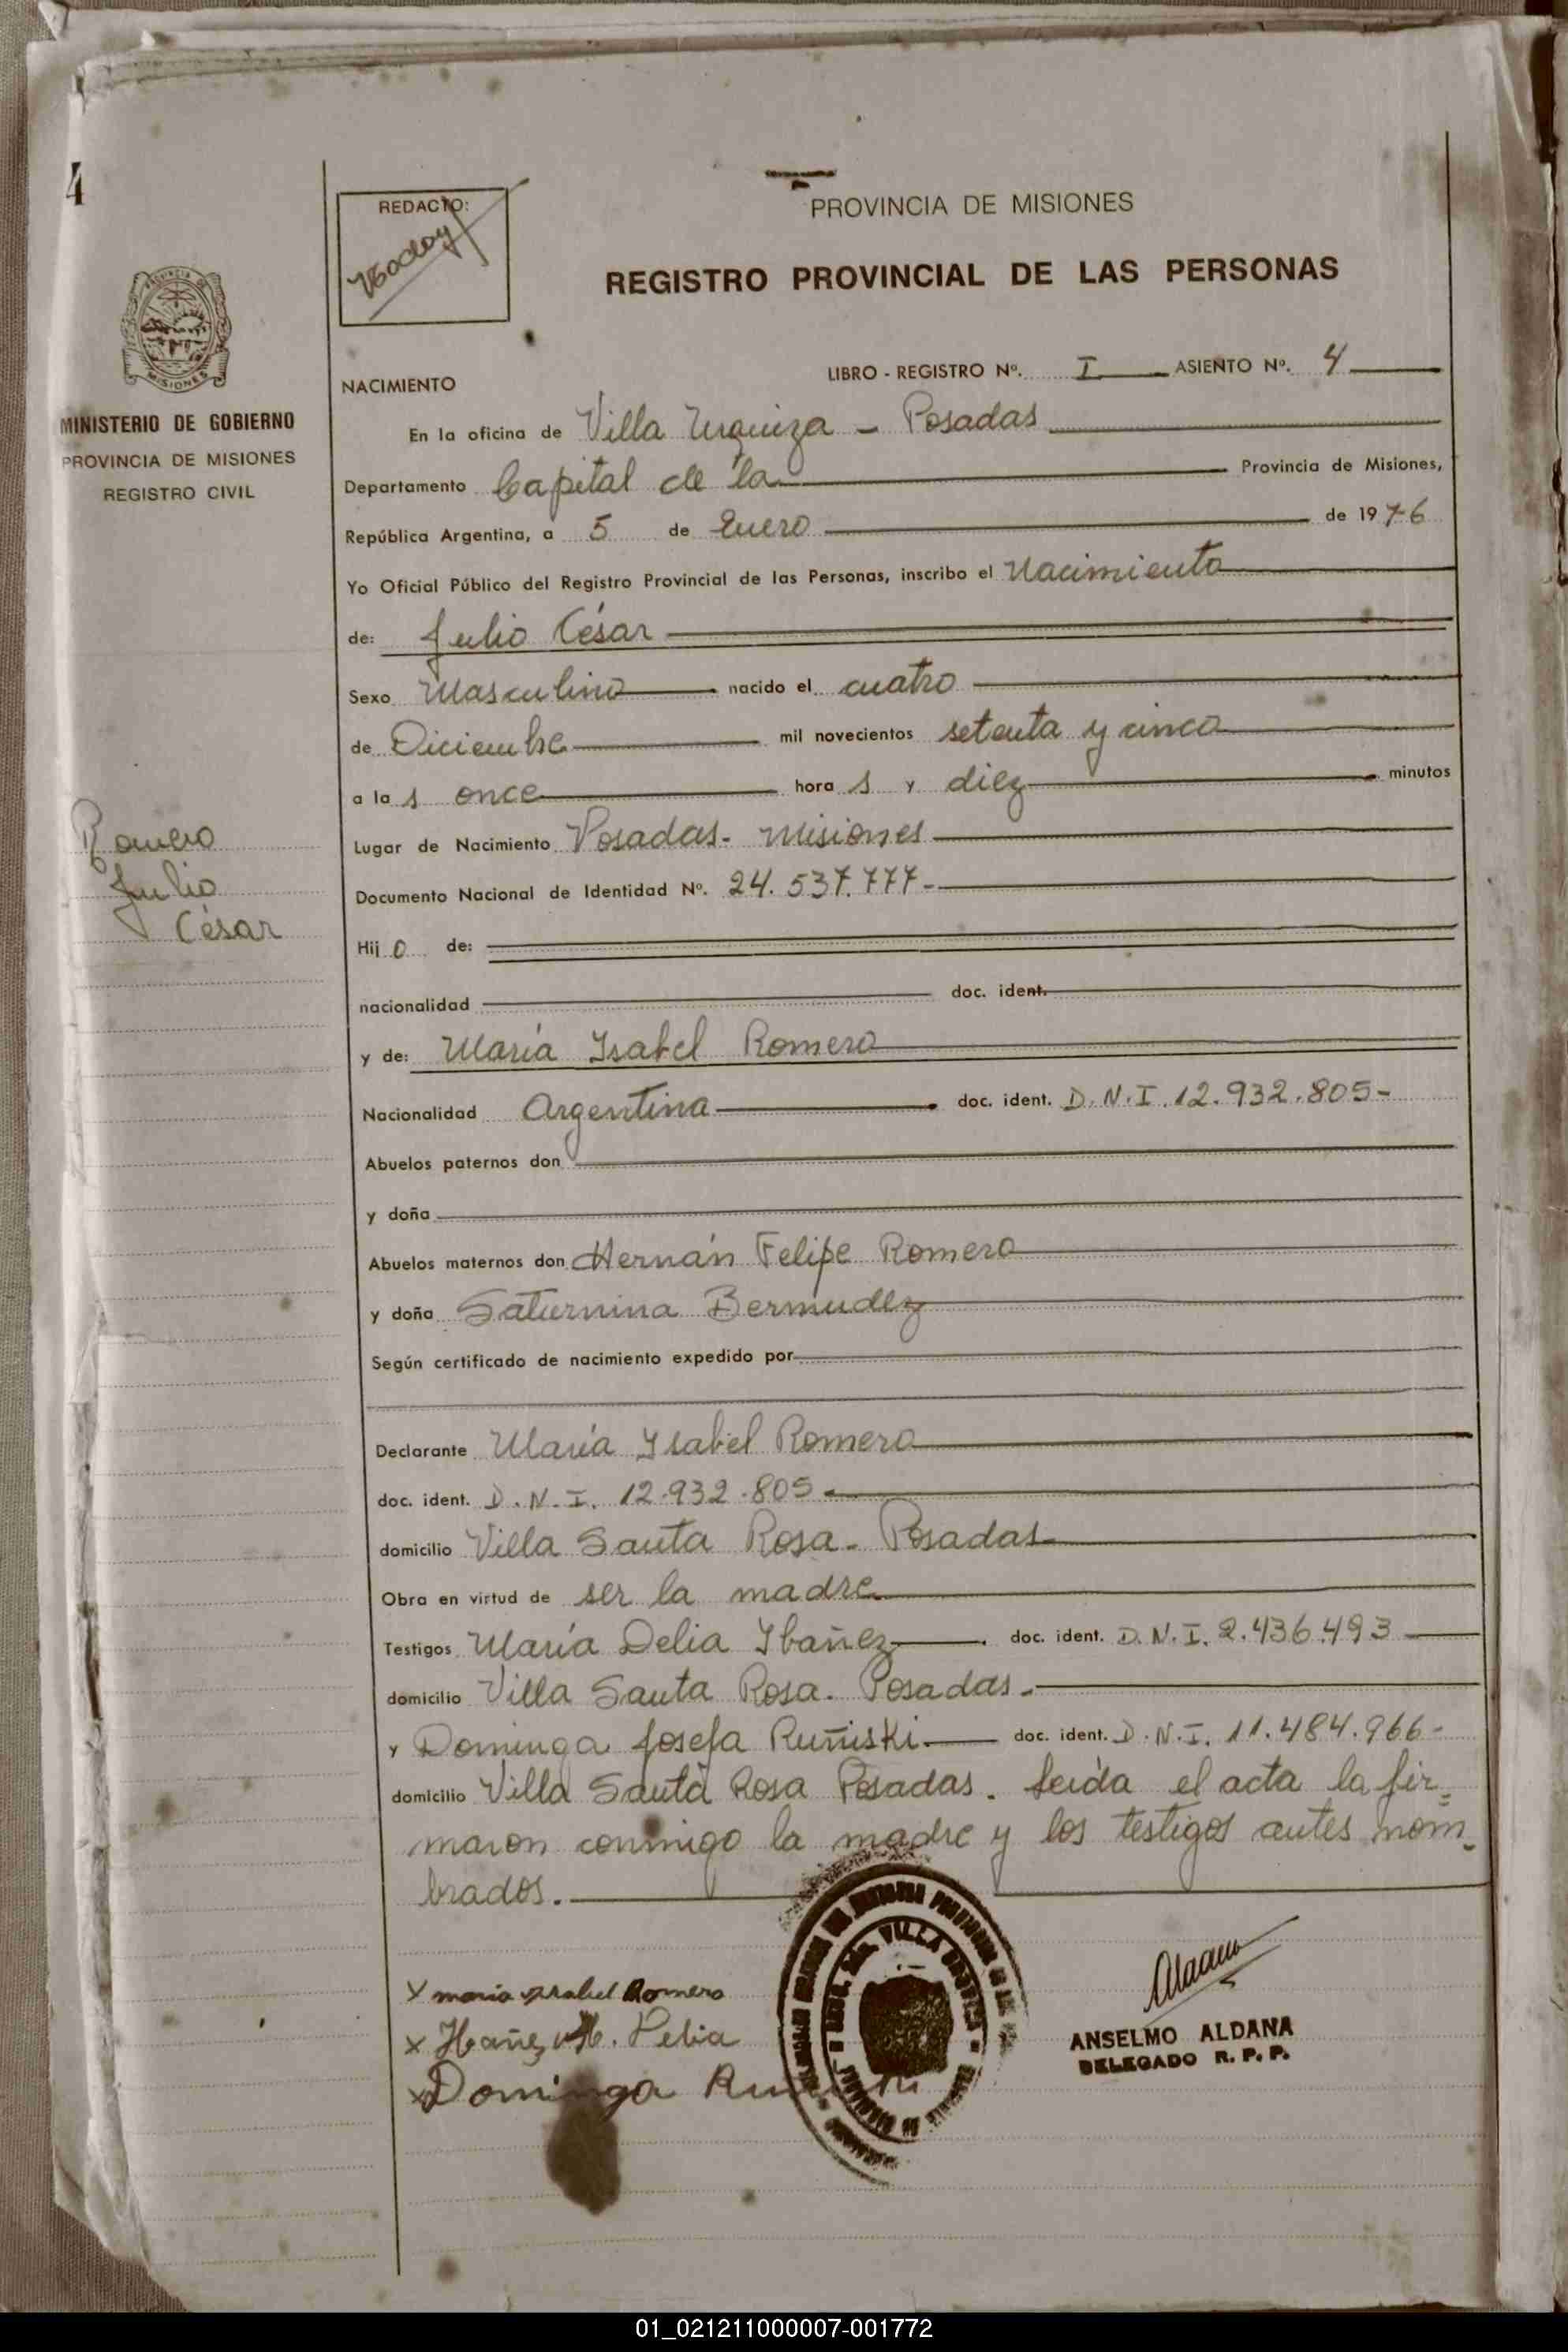 4
REDACTO:
PROVINCIA DE MISIONES
REGISTRO PROVINCIAL DE LAS PERSONAS
MISIONES
MINISTERIO DE GOBIERNO
PROVINCIA DE MISIONES
REGISTRO CIVIL
NACIMIENTO
LIBRO - REGISTRO Nº. I ASIENTO Nº. 4
En la oficina de Villa Urquiza - Posadas
Departamento Capital de la Provincia de Misiones,
República Argentina, a 5 de Enero de 1976
Yo Oficial Público del Registro Provincial de las Personas, inscribo el Nacimiento
de: Julio César
Sexo Masculino nacido el cuatro
de Diciembre mil novecientos setenta y cinco
a las once horas y diez minutos
Lugar de Nacimiento Posadas - Misiones
Romero
Julio
César
Documento Nacional de Identidad Nº. 24.537.777-
Hijo de:
nacionalidad doc. ident.
y de: María Ysabel Romero
Nacionalidad Argentina doc. ident. D.N.I. 12.932.805-
Abuelos paternos don
y doña
Abuelos maternos don Hernán Felipe Romero
y doña Saturnina Bermudez
Según certificado de nacimiento expedido por
Declarante María Ysabel Romero
doc. ident. D.N.I. 12.932.805
domicilio Villa Santa Rosa - Posadas
Obra en virtud de ser la madre
Testigos María Delia Ybañez doc. ident. D.N.I. 2.436.493
domicilio Villa Santa Rosa. Posadas.
y Dominga Josefa Ruñiski. doc. ident. D.N.I. 11.484.966-
domicilio Villa Santa Rosa Posadas. Leída el acta la fir=
maron conmigo la madre y los testigos antes nom-
brados.
x maria ysabel Romero
x Ibañez M. Delia
x Dominga
ANSELMO ALDANA
DELEGADO R. P. P.
01_021211000007-001772